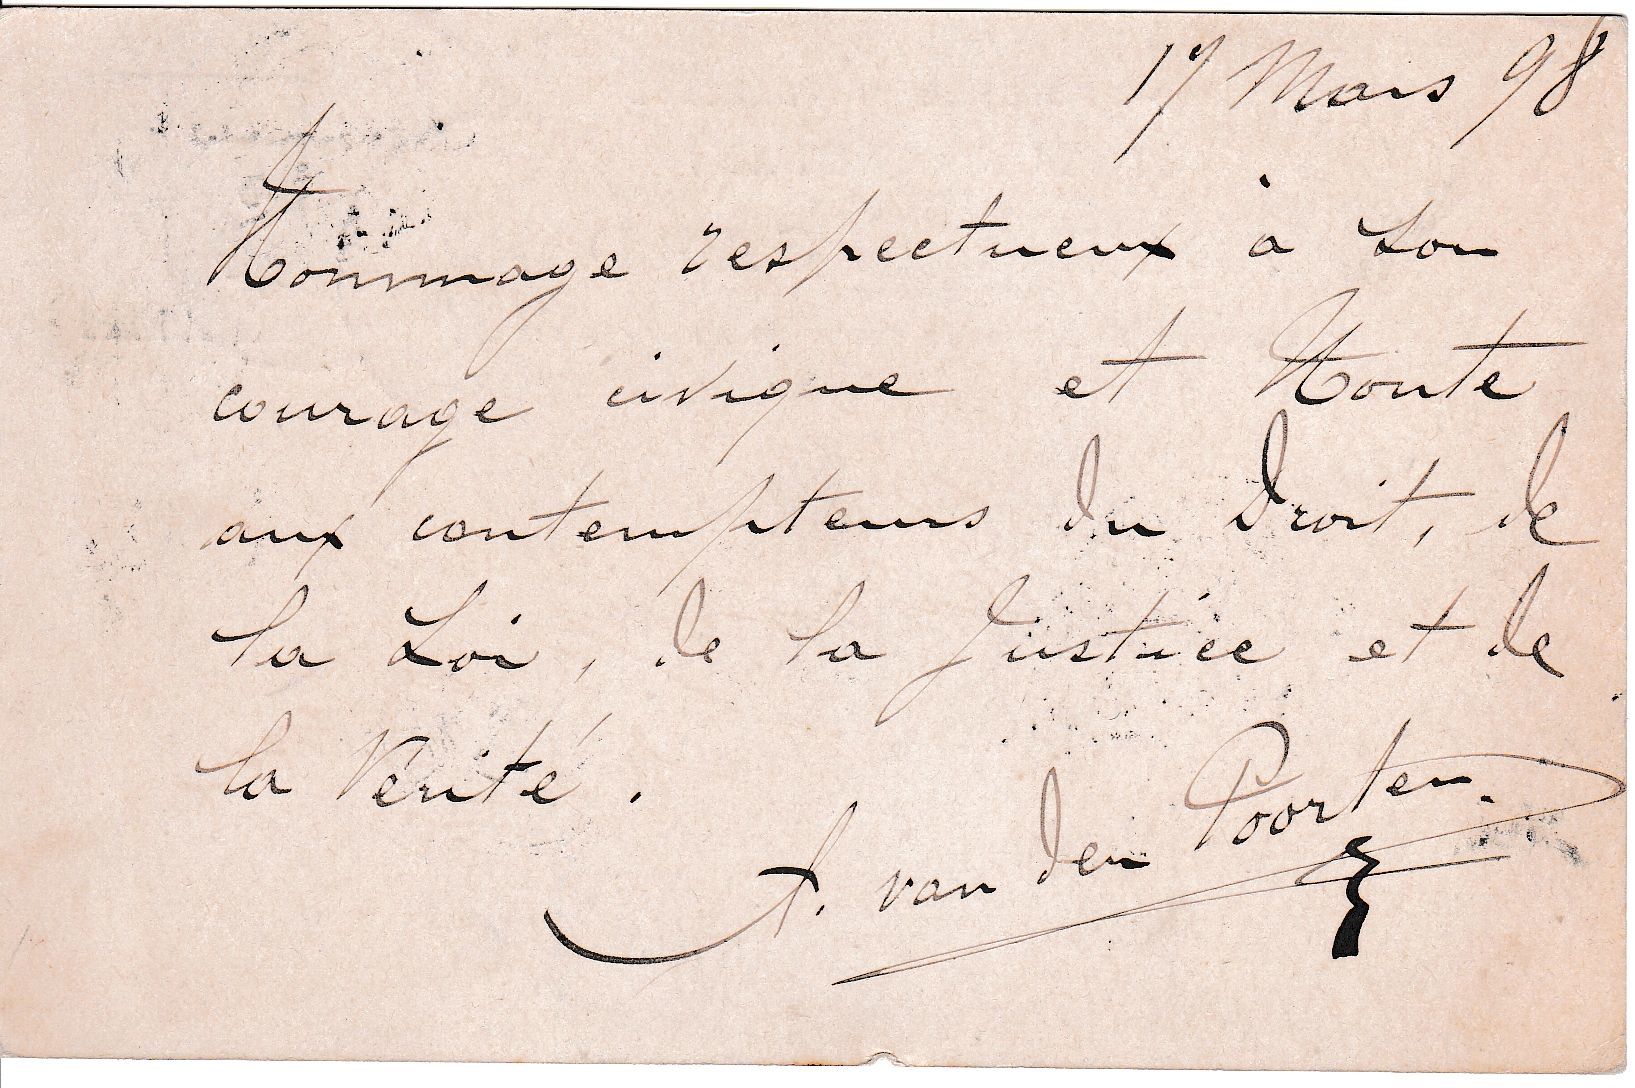 17 Mars 98
Hommage respectueux à son
courage civique et Honte
aux contempteurs du Droit, de
la Loi, de la Justice et de
la Vérité.
A. van den Poorten.